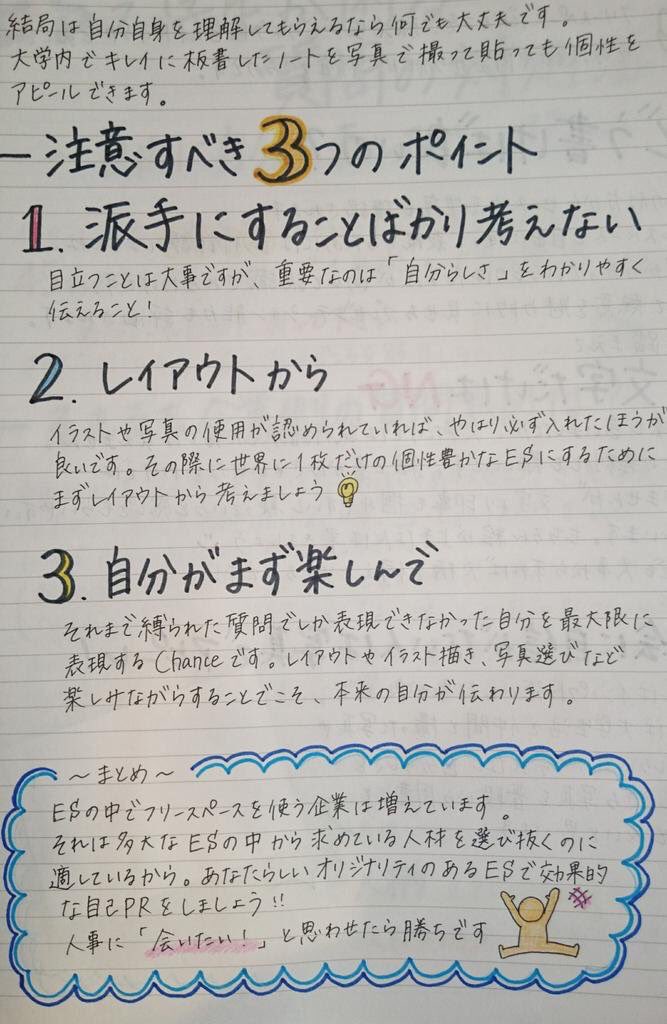 結局は自分自身を理解してもらえるなら何でも大丈夫です。
大学内でキレイに板書したノートを写真で撮って貼っても個性を
アピールできます。
ー注意すべき33つのポイント
1. 派手にすることばかり考えない
目立つことは大事ですが、重要なのは「自分らしさ」をわかりやすく
伝えること!
2. レイアウトから
イラストや写真の使用が認められていれば、やはり必ず入れたほうが
良いです。その際に世界に1枚だけの個性豊かなESにするために
まずレイアウトから考えましょう
3. 自分がまず楽しんで
それまで縛られた質問でしか表現できなかった自分を最大限に
表現するChanceです。レイアウトやイラスト描き、写真選びなど
楽しみながらすることでこそ、本来の自分が伝わります。
～まとめ～
ESの中でフリースペースを使う企業は増えています。
それは多大なESの中から求めている人材を選び抜くのに
適しているから。あなたらしいオリジナリティのあるESで効果的
な自己PRをしましょう!!
人事に「会いたい!」と思わせたら勝ちです